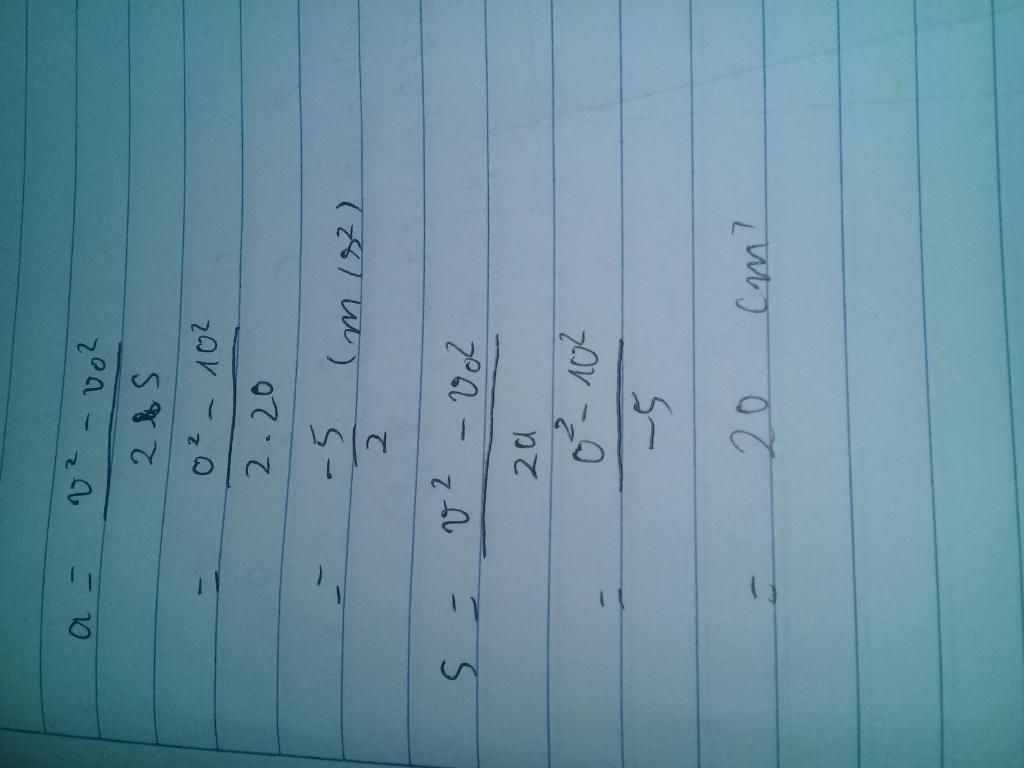 a = v² - v₀²
2 s
= 0² - 10²
2 . 20
= -5 (m/s²)
2
S = v² - v₀²
2a
= 0² - 10²
-5
= 20 (m)